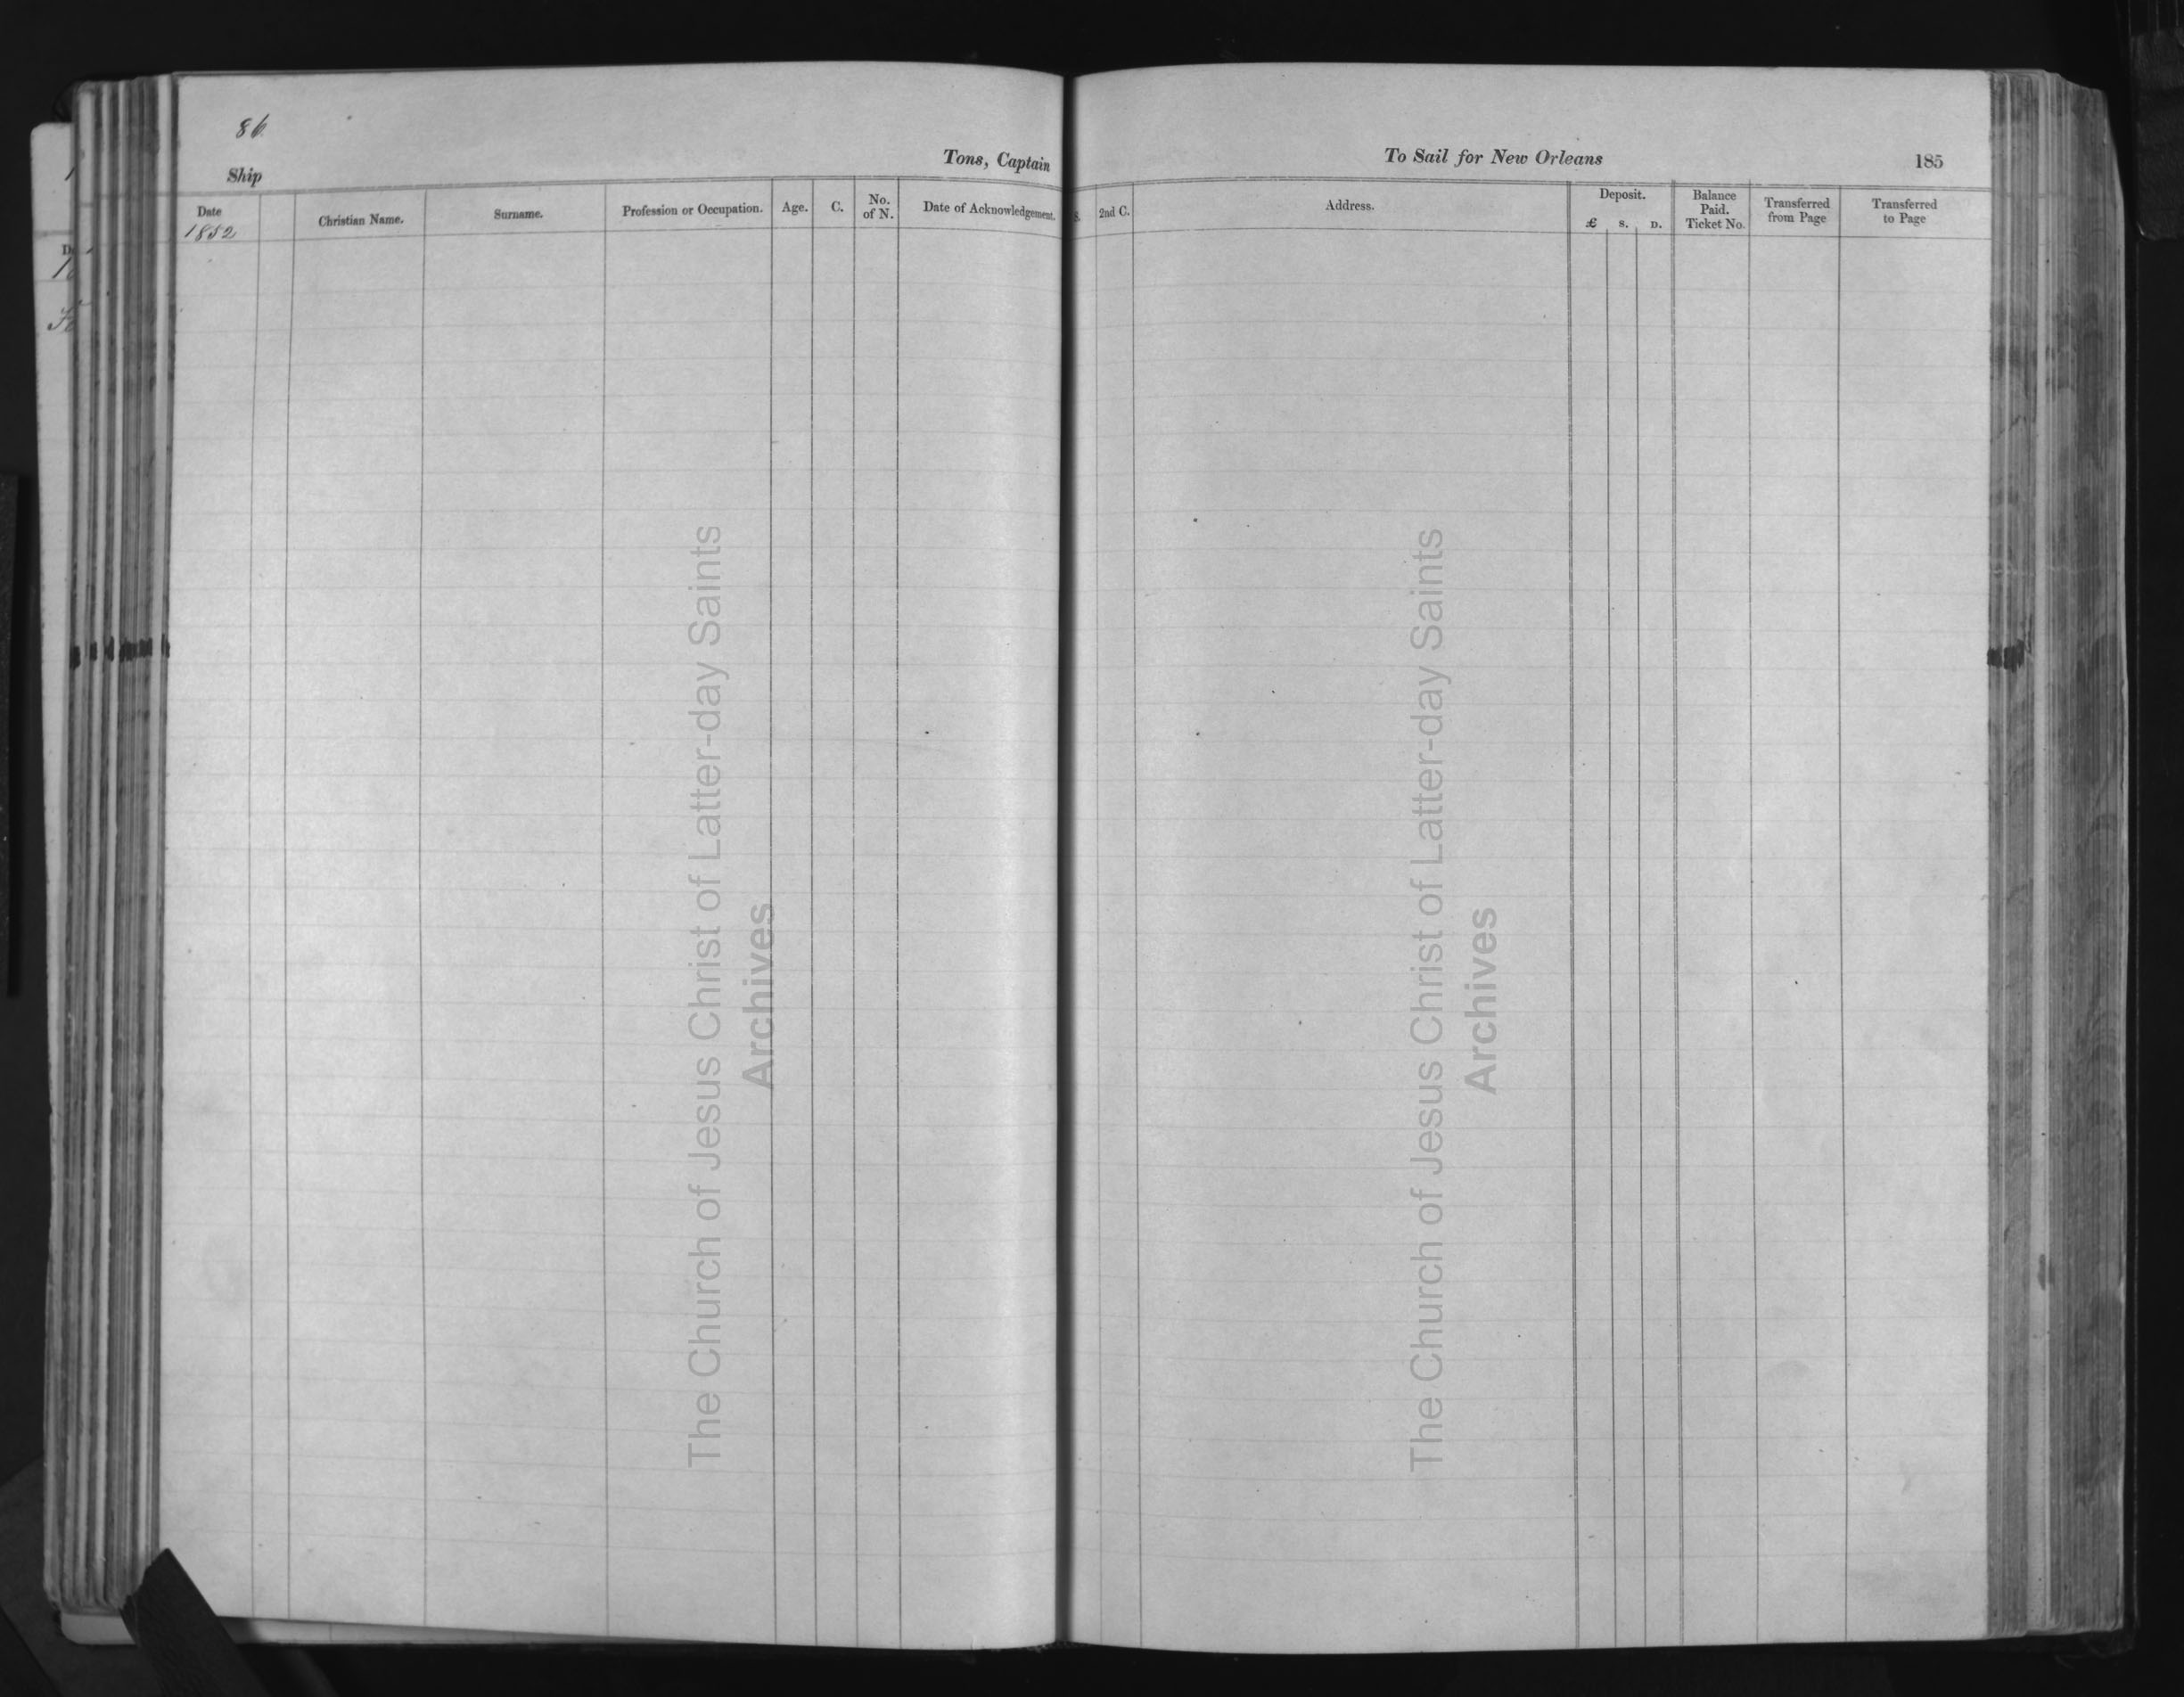 86
Ship
Tons, Captain
Date
1852
Christian Name.
Surname.
Profession or Occupation.
Age.
C.
No.
of N.
Date of Acknowledgement.
To Sail for New Orleans
185
S.
2nd C.
Address.
Deposit.
£ S. D.
Balance
Paid.
Ticket No.
Transferred
from Page
Transferred
to Page
The Church of Jesus Christ of Latter-day Saints
Archives
The Church of Jesus Christ of Latter-day Saints
Archives